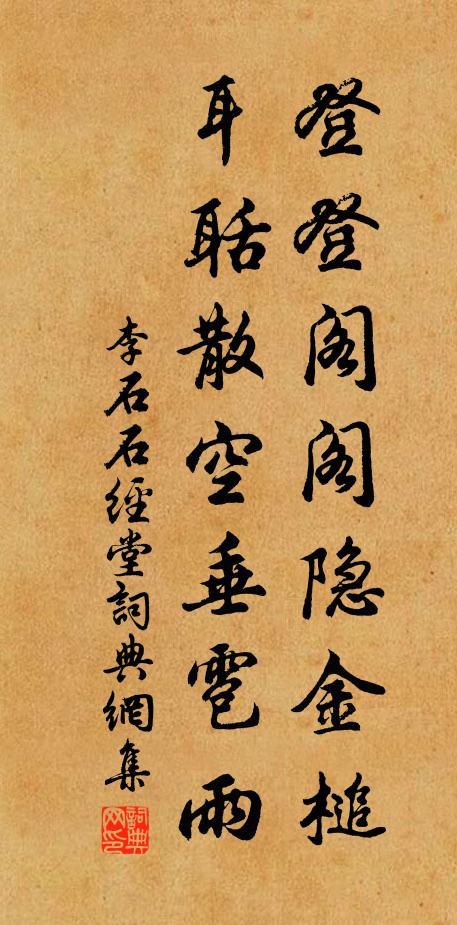 登登阁阁隐金槌
耳聒散空垂雹雨
李石石經堂詞典網集
詞典网印